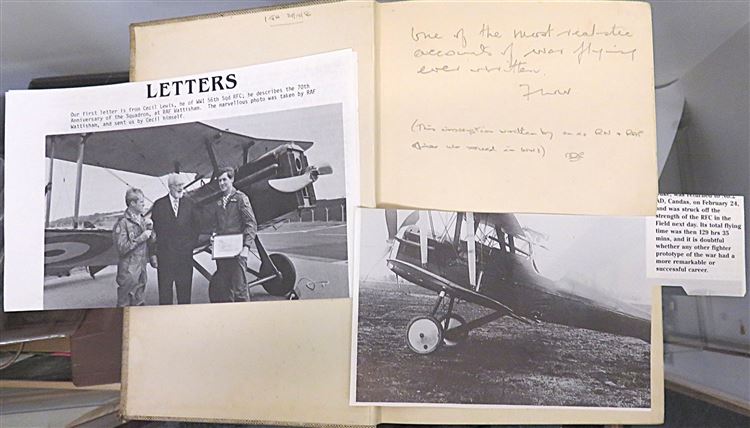 LETTERS
Our first letter is from Cecil Lewis, he of WWI 56th Sqd RFC; he describes the 70th
Anniversary of the Squadron, at RAF Wattisham. The marvellous photo was taken by RAF
Wattisham, and sent us by Cecil himself.
one of the most realistic
accounts of war flying
ever written.
(This inscription written by an ex RN + RAF
who served in WW1)
AD, Candas, on February 24,
and was struck off the
strength of the RFC in the
Field next day. Its total flying
time was then 129 hrs 35
mins, and it is doubtful
whether any other fighter
prototype of the war had a
more remarkable or
successful career.